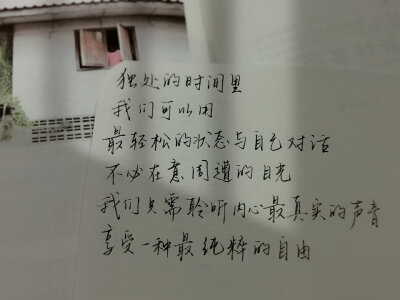 独处的时间里
我们可以用
最轻松的状态与自己对话
不必在意周遭的目光
我们只需聆听内心最真实的声音
享受一种最纯粹的自由